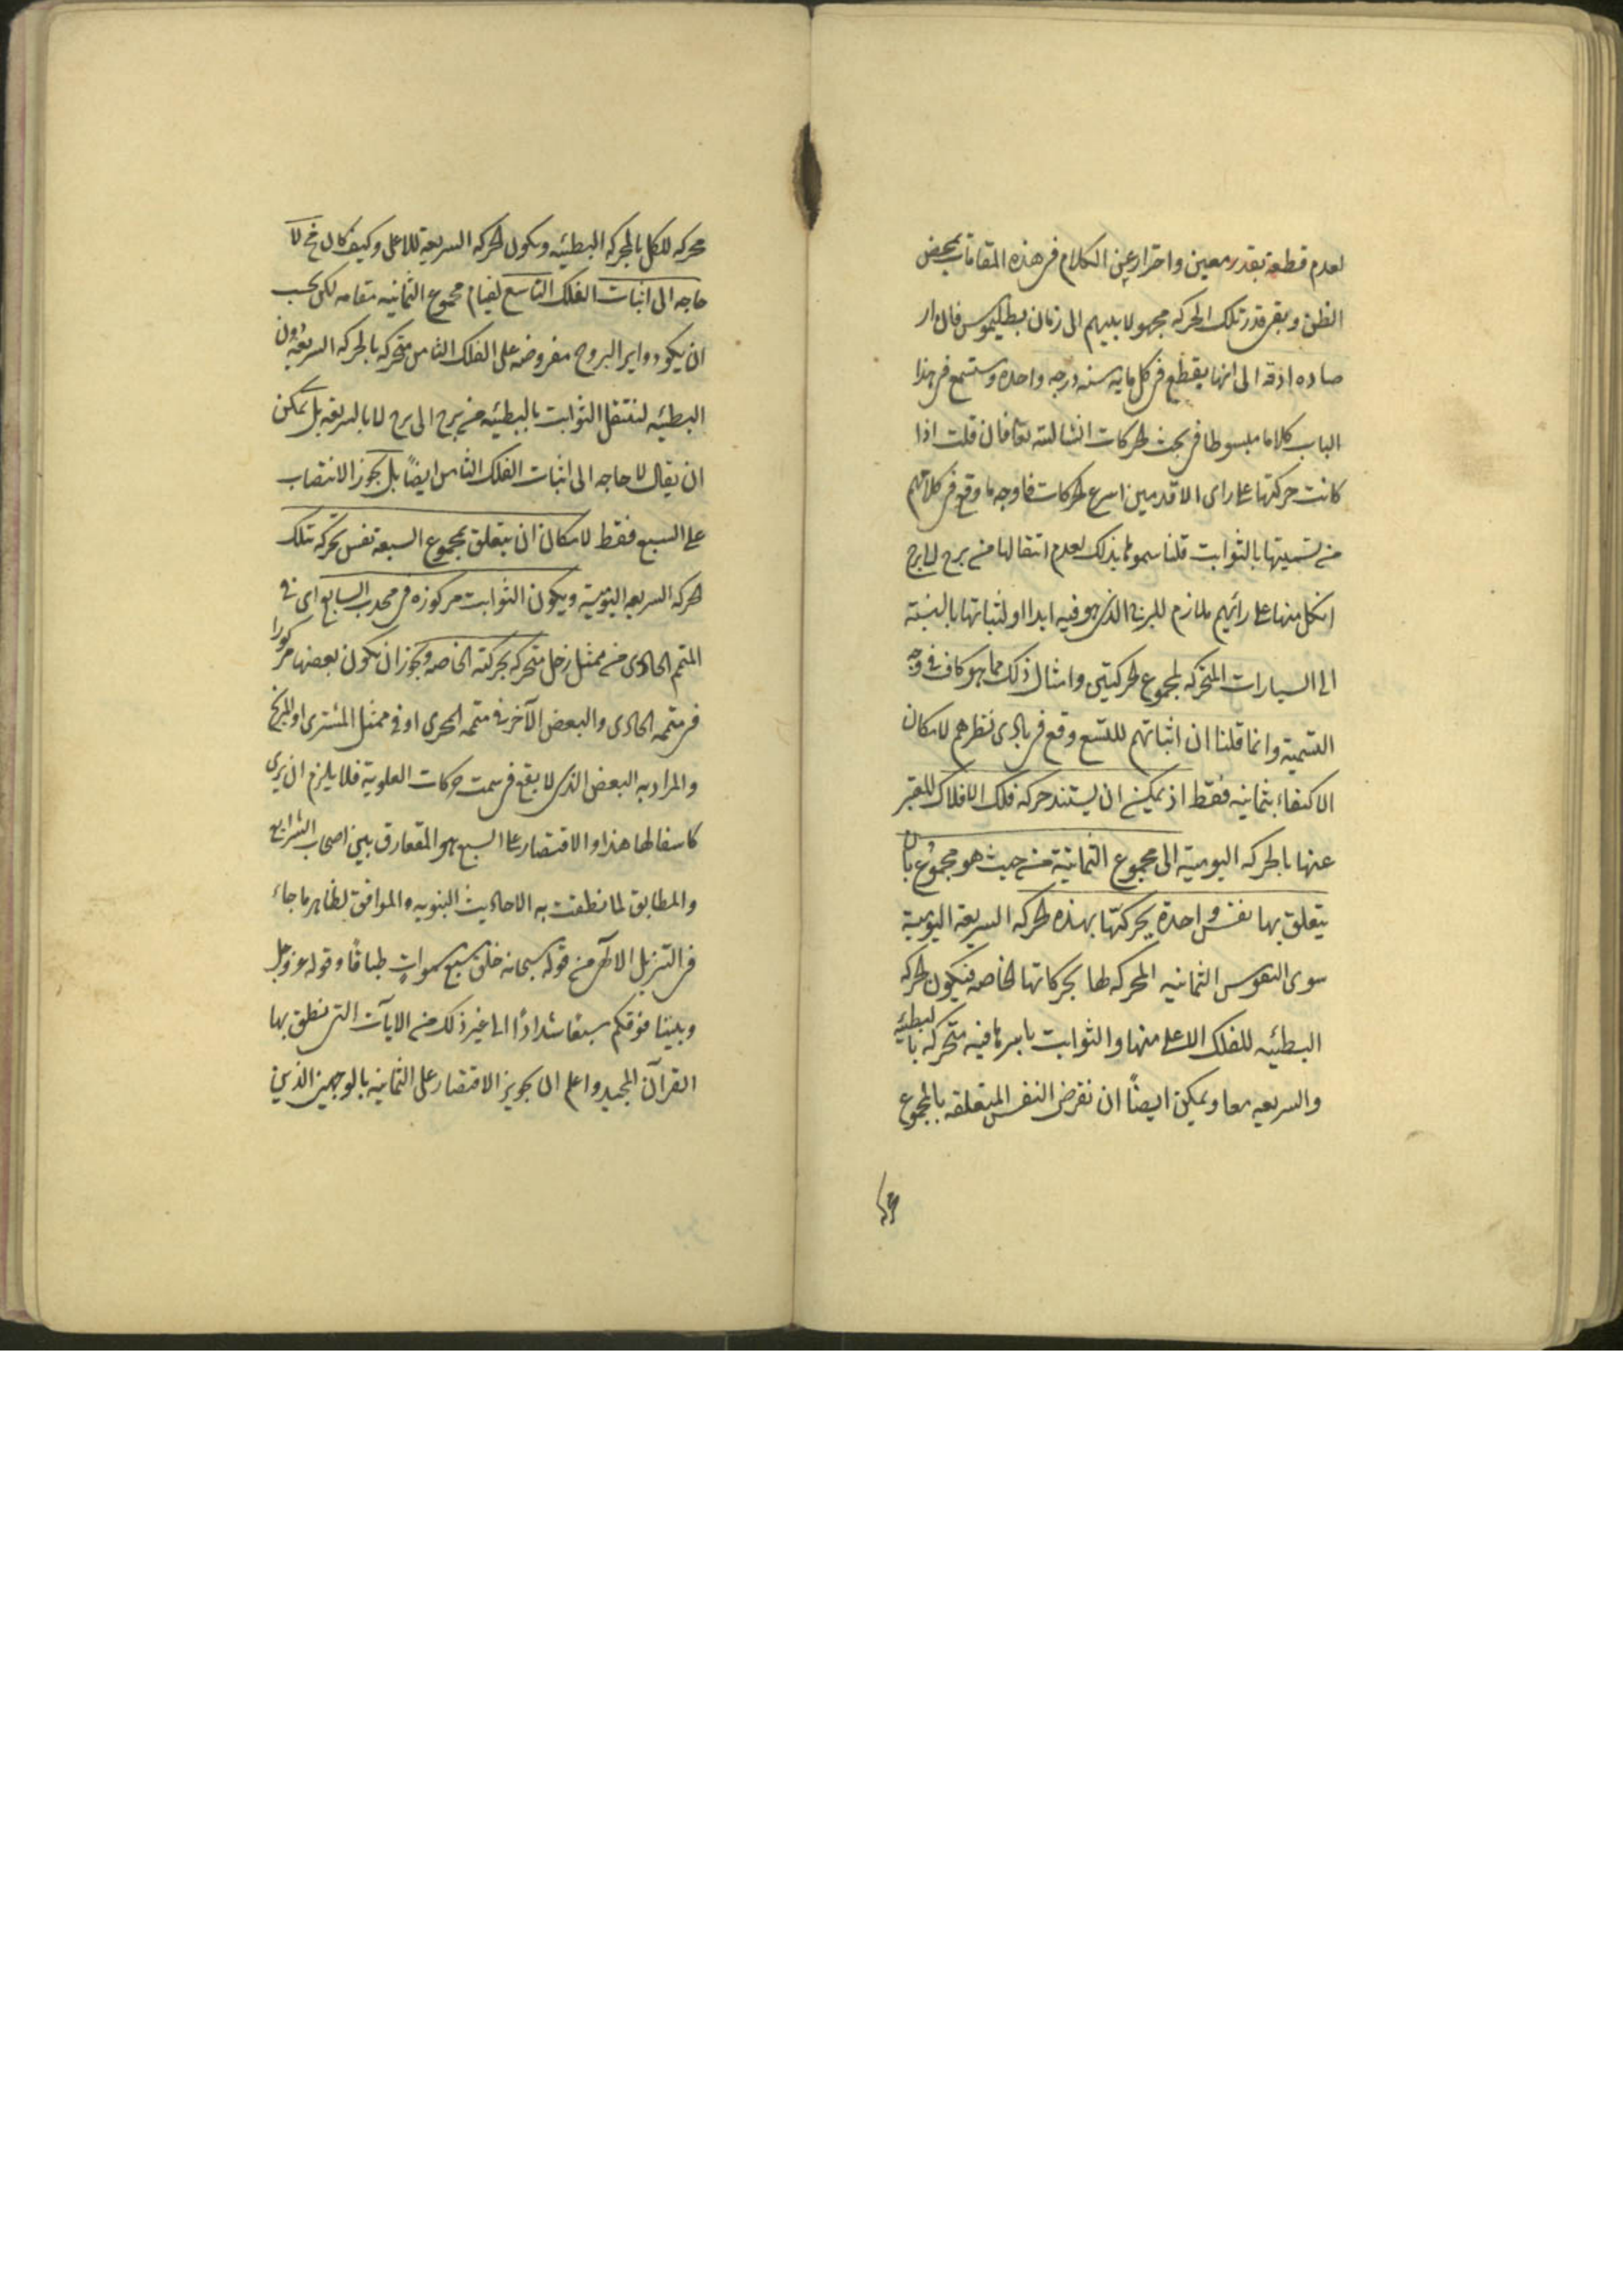 لعدم قطعه بقدر معين واحترازا عن الكلام فى هذه المقامات بمحض
الظن وبقى قدر تلك الحركه مجهولا بينهم الى زمان بطليموس فان ار
صاده ادته الى انها يقطع فى كل مايه سنه درجه واحده وستسمع فى هذا
الباب كلاما مبسوطا فى بحث الحركات الثالثه فان قلت اذا
كانت حركتها على راى الاقدمين اسرع الحركات فما وجه ما وقع فى كلامهم
من تسميتها بالثوابت قلنا سموها بذلك لعدم انتقالها من برج الى برج
اذ كل منها على رائهم ملازم للبرج الذى هو فيه ابدا او لثباتها بالنسبة
الى السيارات المتحركه بمجموع الحركتين وامثال ذلك مما هو كاف فى وجه
التسمية وانما قلنا ان اثباتهم للتسع وقع فى بادى نظرهم لامكان
الاكتفاء بثمانيه فقط اذ يمكن ان يستند حركه فلك الافلاك المعبر
عنها بالحركه اليوميه الى مجموع الثمانية من حيث هو مجموع بان
يتعلق بها نفس واحدة يحركها بهذه الحركه السريعة اليومية
سوى النفوس الثمانيه المحركه لها بحركاتها الخاصه فيكون الحركه
البطئيه للفلك الاعلى منها والثوابت باسرها فيه متحركه بالبطئيه
والسريعه معا ويمكن ايضاً ان نفرض النفس المتعلقه بالمجموع
محركه للكل بالحركه البطئيه ويكون الحركه السريعة للاعلى وكيف كان فح لا
حاجه الى اثبات الفلك التاسع لقيام مجموع الثمانيه مقامه لكن يجب
ان يكون دواير البروج مفروضه على الفلك الثامن متحركه بالحركه السريعة دون
البطئيه لتنتقل الثوابت بالبطئيه من برج الى برج لا بالسريعه بل يمكن
ان يقال لا حاجه الى اثبات الفلك الثامن ايضاً بل يجوز الاقتصار
على السبع فقط لامكان ان يتعلق بمجموع السبعه نفس تحركه تلك
الحركه السريعه اليومية ويكون الثوابت مركوزه فى محدب السابع اى فى
المتمم الحاوى من ممثل زحل متحركه بحركته الخاصه ويجوز ان يكون بعضها مركوزا
فى متممه الحاوى والبعض الآخر فى متممه المحوى او فى ممثل المشترى او المريخ
والمراد به البعض الذى لا يقع فى سمت حركات العلوية فلا يلزم ان يرى
كاسفا لها هذا والاقتصار على السبع هو المتعارف بين اصحاب الشرايع
والمطابق لما نطقت به الاحاديث النبويه والموافق لظاهر ما جاء
فى التنزيل الالهى من قوله سبحانه خلق سبع سموات طباقا وقوله عز وجل
وبنينا فوقكم سبعا شدادًا الى غير ذلك من الايات التى نطق بها
القرآن المجيد واعلم ان تجويز الاقتصار على الثمانيه بالوجهين الذين